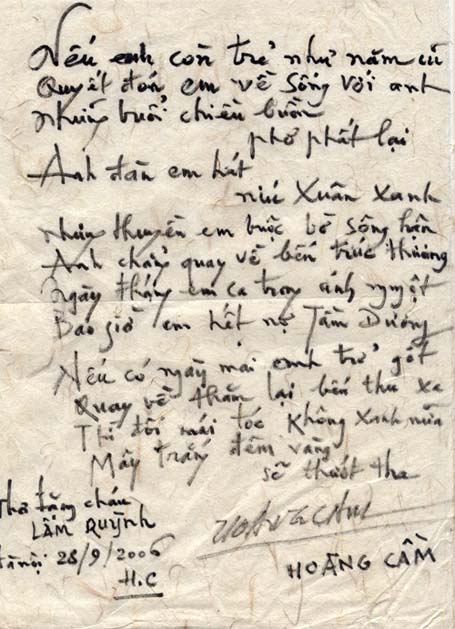 Nếu anh còn trẻ như năm cũ
Quyết đón em về sống với anh
những buổi chiều buồn
phơ phất lại
Anh đàn em hát
níu Xuân Xanh
Nhưng thuyền em buộc bờ sông hận
Anh chẳng quay về bến trúc
Ngày tháng em ca trong ánh nguyệt
Bao giờ em hết nợ Tầm Dương
Nếu có ngày mai anh trở gót
Quay về thăm lại bến thu xa
Thì đôi mái tóc không xanh nữa
Mây trắng đêm vàng
sẽ thướt tha
Thơ tặng cháu
LÂM QUỲNH
Hà nội 28/9/2006
H.C
HOÀNG CẦM